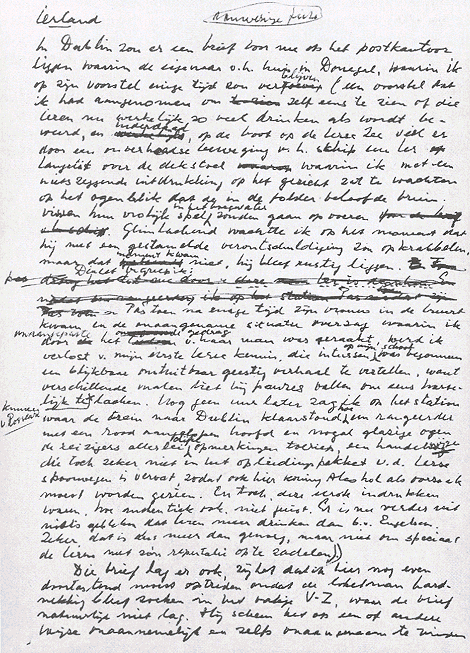 Ierland
In Dublin zou er een brief voor me op het postkantoor
liggen waarin de eigenaar v.h. huis in Donegal, waarin ik
op zijn voorstel enige tijd zou verblijven (een voorstel dat
ik had aangenomen om zelf eens te zien of die
Ieren nu werkelijk zo veel drinken als wordt be-
weerd, en inderdaad, op de boot op de Ierse Zee viel er
door een onverhoedse beweging v.h. schip een Ier
languit over de dekstoel waarin ik met een
nietszeggende uitdrukking op het gezicht zat te wachten
op het ogenblik dat de in de folder beloofde bruin
vissen hun vrolijke spel zouden gaan opvoeren
Glimlachend wachtte ik op het moment dat
hij met een gestamelde verontschuldiging zou opkrabbelen,
maar dat moment kwam niet, hij bleef rustig liggen
Pas toen na enige tijd zijn vrouw in de buurt
kwam en de situatie overzag waarin ik
door het gedrag v. haar man was geraakt, werd ik
verlost v. mijn eerste Ierse kennis, die intussen op mijn schoot was begonnen
een blijkbaar onstuitbaar geestig verhaal te vertellen, want
verschillende malen liet hij pauzes vallen om eens harte-
lijk te lachen. Nog geen uur later zag ik op het station
waar de trein naar Dublin klaarstond, hoe een rangeerder
met een rood aangelopen hoofd en nogal glazige ogen
de reizigers allerlei opmerkingen toeriep, een handelswijze
die toch zeker niet in het opleidingspakket v.d. Ierse
spoorwegen is vervat, zodat ook hier koning Alcohol als oorzaak
moest worden gezien. En toch, deze eerste indrukken
waren, hoe authentiek ook, niet juist. Er is me verder uit
niets gebleken dat Ieren meer drinken dan b.v. Engelsen.
Zeker, dat is dus meer dan genoeg, maar niet om speciaal
de Ieren met zo'n reputatie op te zadelen)
Die brief lag er ook, zij het dat ik hier nog even
doortastend moest optreden omdat de loketman hard-
nekkig bleef zoeken in het vakje V-Z, waar de brief
natuurlijk niet lag. Hij scheen het op een of andere
wijze onaannemelijk en zelfs onaangenaam te vinden